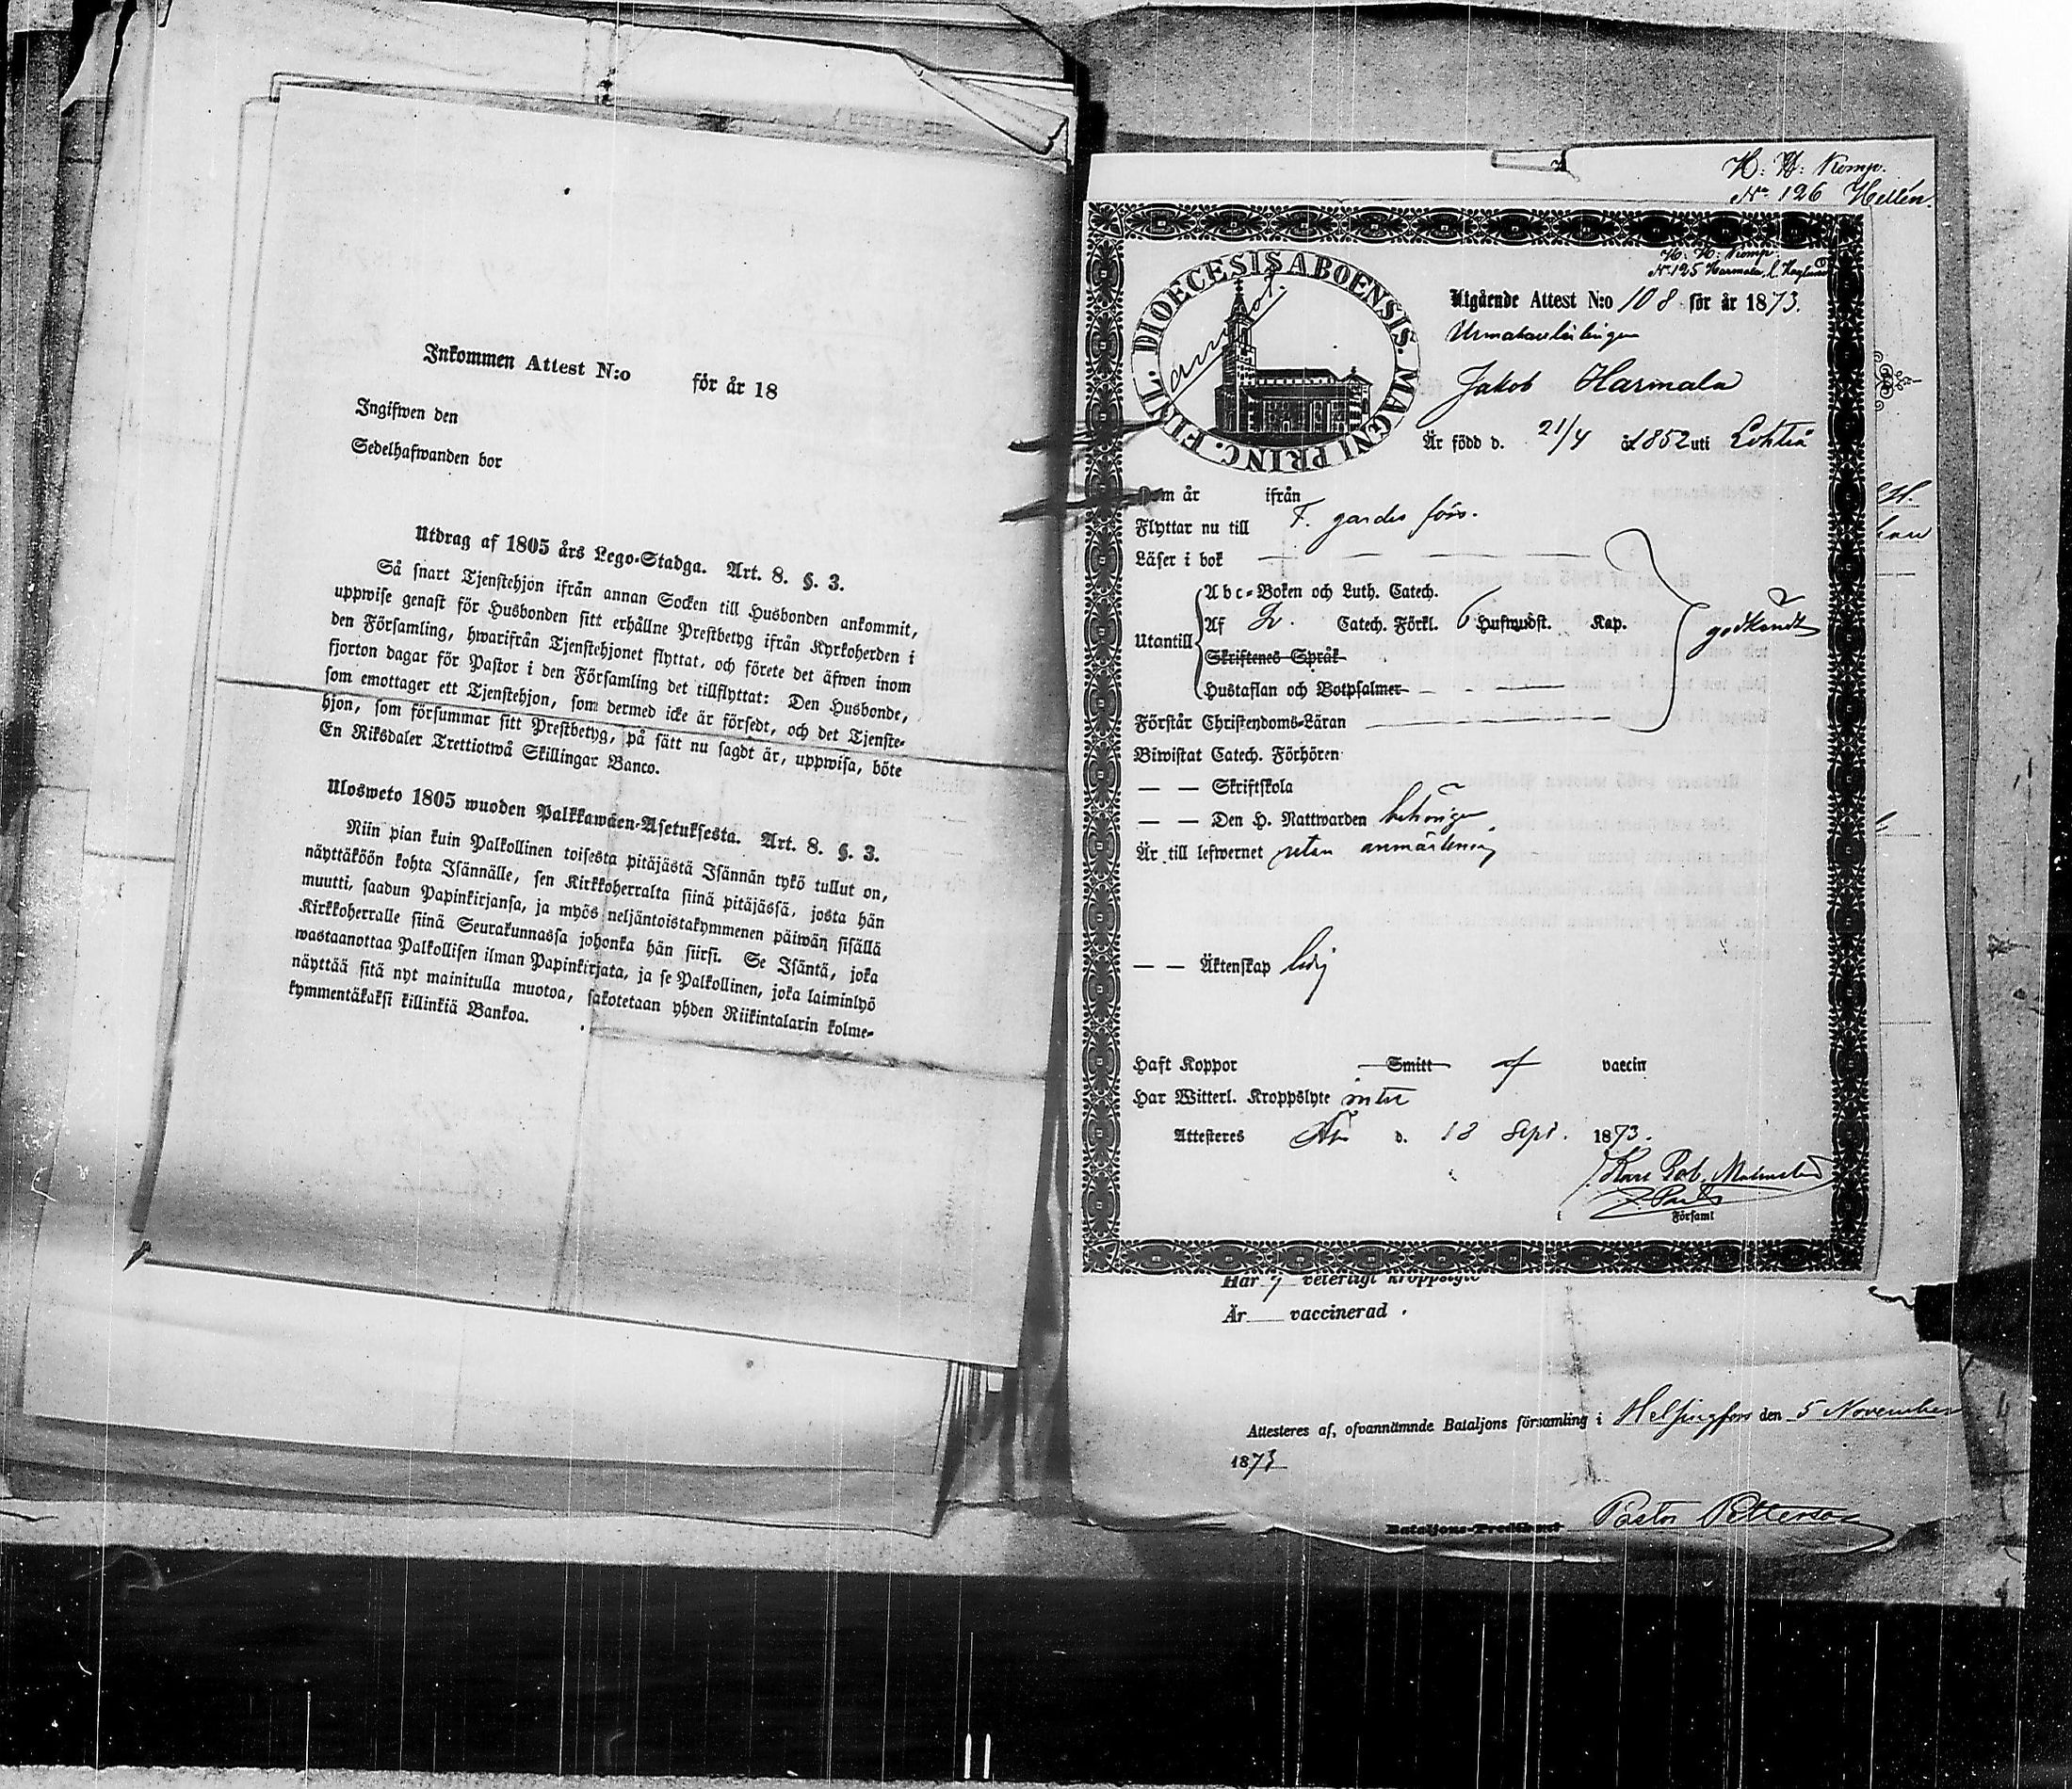 Inkommen Attest N:o för år 18
Ingifwen den
Sedelhafwanden bor
Utdrag af 1805 års Lego-Stadga. Art. 8. §. 3.
Så snart Tjenstehjon ifrån annan Socken till Husbonden ankommit,
uppwise genast för Husbonden sitt erhållne Prestbetyg ifrån Kyrkoherden i
den Församling, hwarifrån Tjenstehjonet flyttat, och förete det äfwen inom
fjorton dagar för Pastor i den Församling det tillflyttat: Den Husbonde,
som emottager ett Tjenstehjon, som dermed icke är försedt, och det Tjenste-
hjon, som försummar sitt Prestbetyg, på sätt nu sagdt är, uppwisa, böte
En Riksdaler Trettiotwå Skillingar Banco.
Ulosweto 1805 wuoden Palkkawäen-Asetuksesta. Art. 8. §. 3.
Niin pian kuin Palkollinen toisesta pitäjästä Isännän tykö tullut on,
näyttäköön kohta Isännälle, sen Kirkkoherralta siinä pitäjässä, josta hän
muutti, saadun Papinkirjansa, ja myös neljäntoistakymmenen päiwän sisällä
Kirkkoherralle siinä Seurakunnassa johonka hän siirsi. Se Isäntä, joka
wastaanottaa Palkollisen ilman Papinkirjata, ja se Palkollinen, joka laiminlyö
näyttää sitä nyt mainitulla muotoa, sakotetaan yhden Riikintalarin kolme-
kymmentäkaksi killinkiä Bankoa.
H: W: Komp.
No 126 Hellén.
H: W: Komp.
No 125 Harmala, l. Haglund
DIOECESIS ABOENSIS. MAGNI PRINC. FINL.
Utgående Attest N:o 108 för år 1873.
Urmakarlärlingen
Jakob Harmala
Är född d. 21/4 år 1852 uti Lohteå
Kom år ifrån
Flyttar nu till F. gardes förs.
Läser i bok
Utantill
Abc-Boken och Luth. Catech.
Af Catech. Förkl. 6 Hufwudst. Kap.
Skriftenes Språk
Hustaflan och Botpsalmer
godkändt
Förstår Christendoms-Läran
Biwistat Catech. Förhören
— — Skriftskola
— — Den H. Nattwarden behörigen
Är till lefwernet utan anmärkning
— — Äktenskap ledig
Haft Koppor Smitt af vaccin
Har Witterl. Kroppslyte intet
Attesteres Åbo d. 18 Sept. 1873.
Karl Rob. Malmstedt
Församl
Har ej veterligt kroppslyte
Är vaccinerad .
Attesteres af, ofvannämnde Bataljons församling i Helsingfors den 5 November
1873
Bataljons-Predikant Pastor Petterson